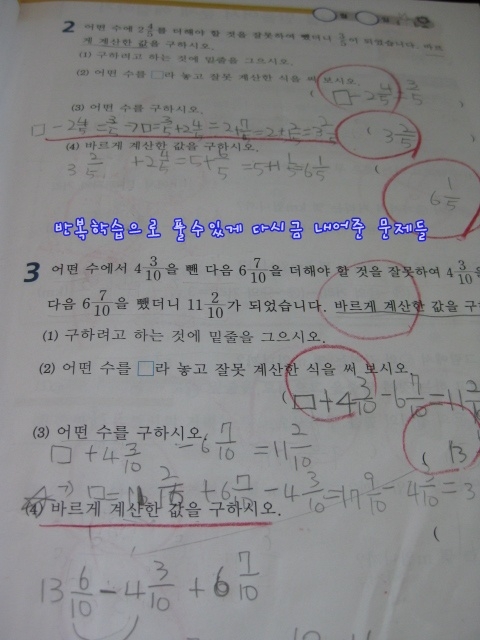 월 일
2 어떤 수에 2 4/5를 더해야 할 것을 잘못하여 뺐더니 3/5이 되었습니다. 바르
게 계산한 값을 구하시오.
(1) 구하려고 하는 것에 밑줄을 그으시오.
(2) 어떤 수를 □라 놓고 잘못 계산한 식을 써 보시오.
( □ - 2 4/5 = 3/5 )
(3) 어떤 수를 구하시오.
□ - 2 4/5 = 3/5 → □ = 3/5 + 2 4/5 = 2 + 7/5 = 2 + 1 2/5 = 3 2/5 ( 3 2/5 )
(4) 바르게 계산한 값을 구하시오.
3 2/5 + 2 4/5 = 5 + 6/5 = 5 + 1 1/5 = 6 1/5 ( 6 1/5
반복학습으로 풀수있게 다시금 내어준 문제들
3 어떤 수에서 4 3/10을 뺀 다음 6 7/10을 더해야 할 것을 잘못하여 4 3/10을
다음 6 7/10을 뺐더니 11 2/10가 되었습니다. 바르게 계산한 값을 구
(1) 구하려고 하는 것에 밑줄을 그으시오.
(2) 어떤 수를 □라 놓고 잘못 계산한 식을 써 보시오.
( □ + 4 3/10 - 6 7/10 = 11 2
(3) 어떤 수를 구하시오.
□ + 4 3/10 - 6 7/10 = 11 2/10 ( 13
□ = 11 2/10 + 6 7/10 - 4 3/10 = 17 9/10 - 4 3/10 = 3
(4) 바르게 계산한 값을 구하시오.
(
13 6/10 - 4 3/10 + 6 7/10